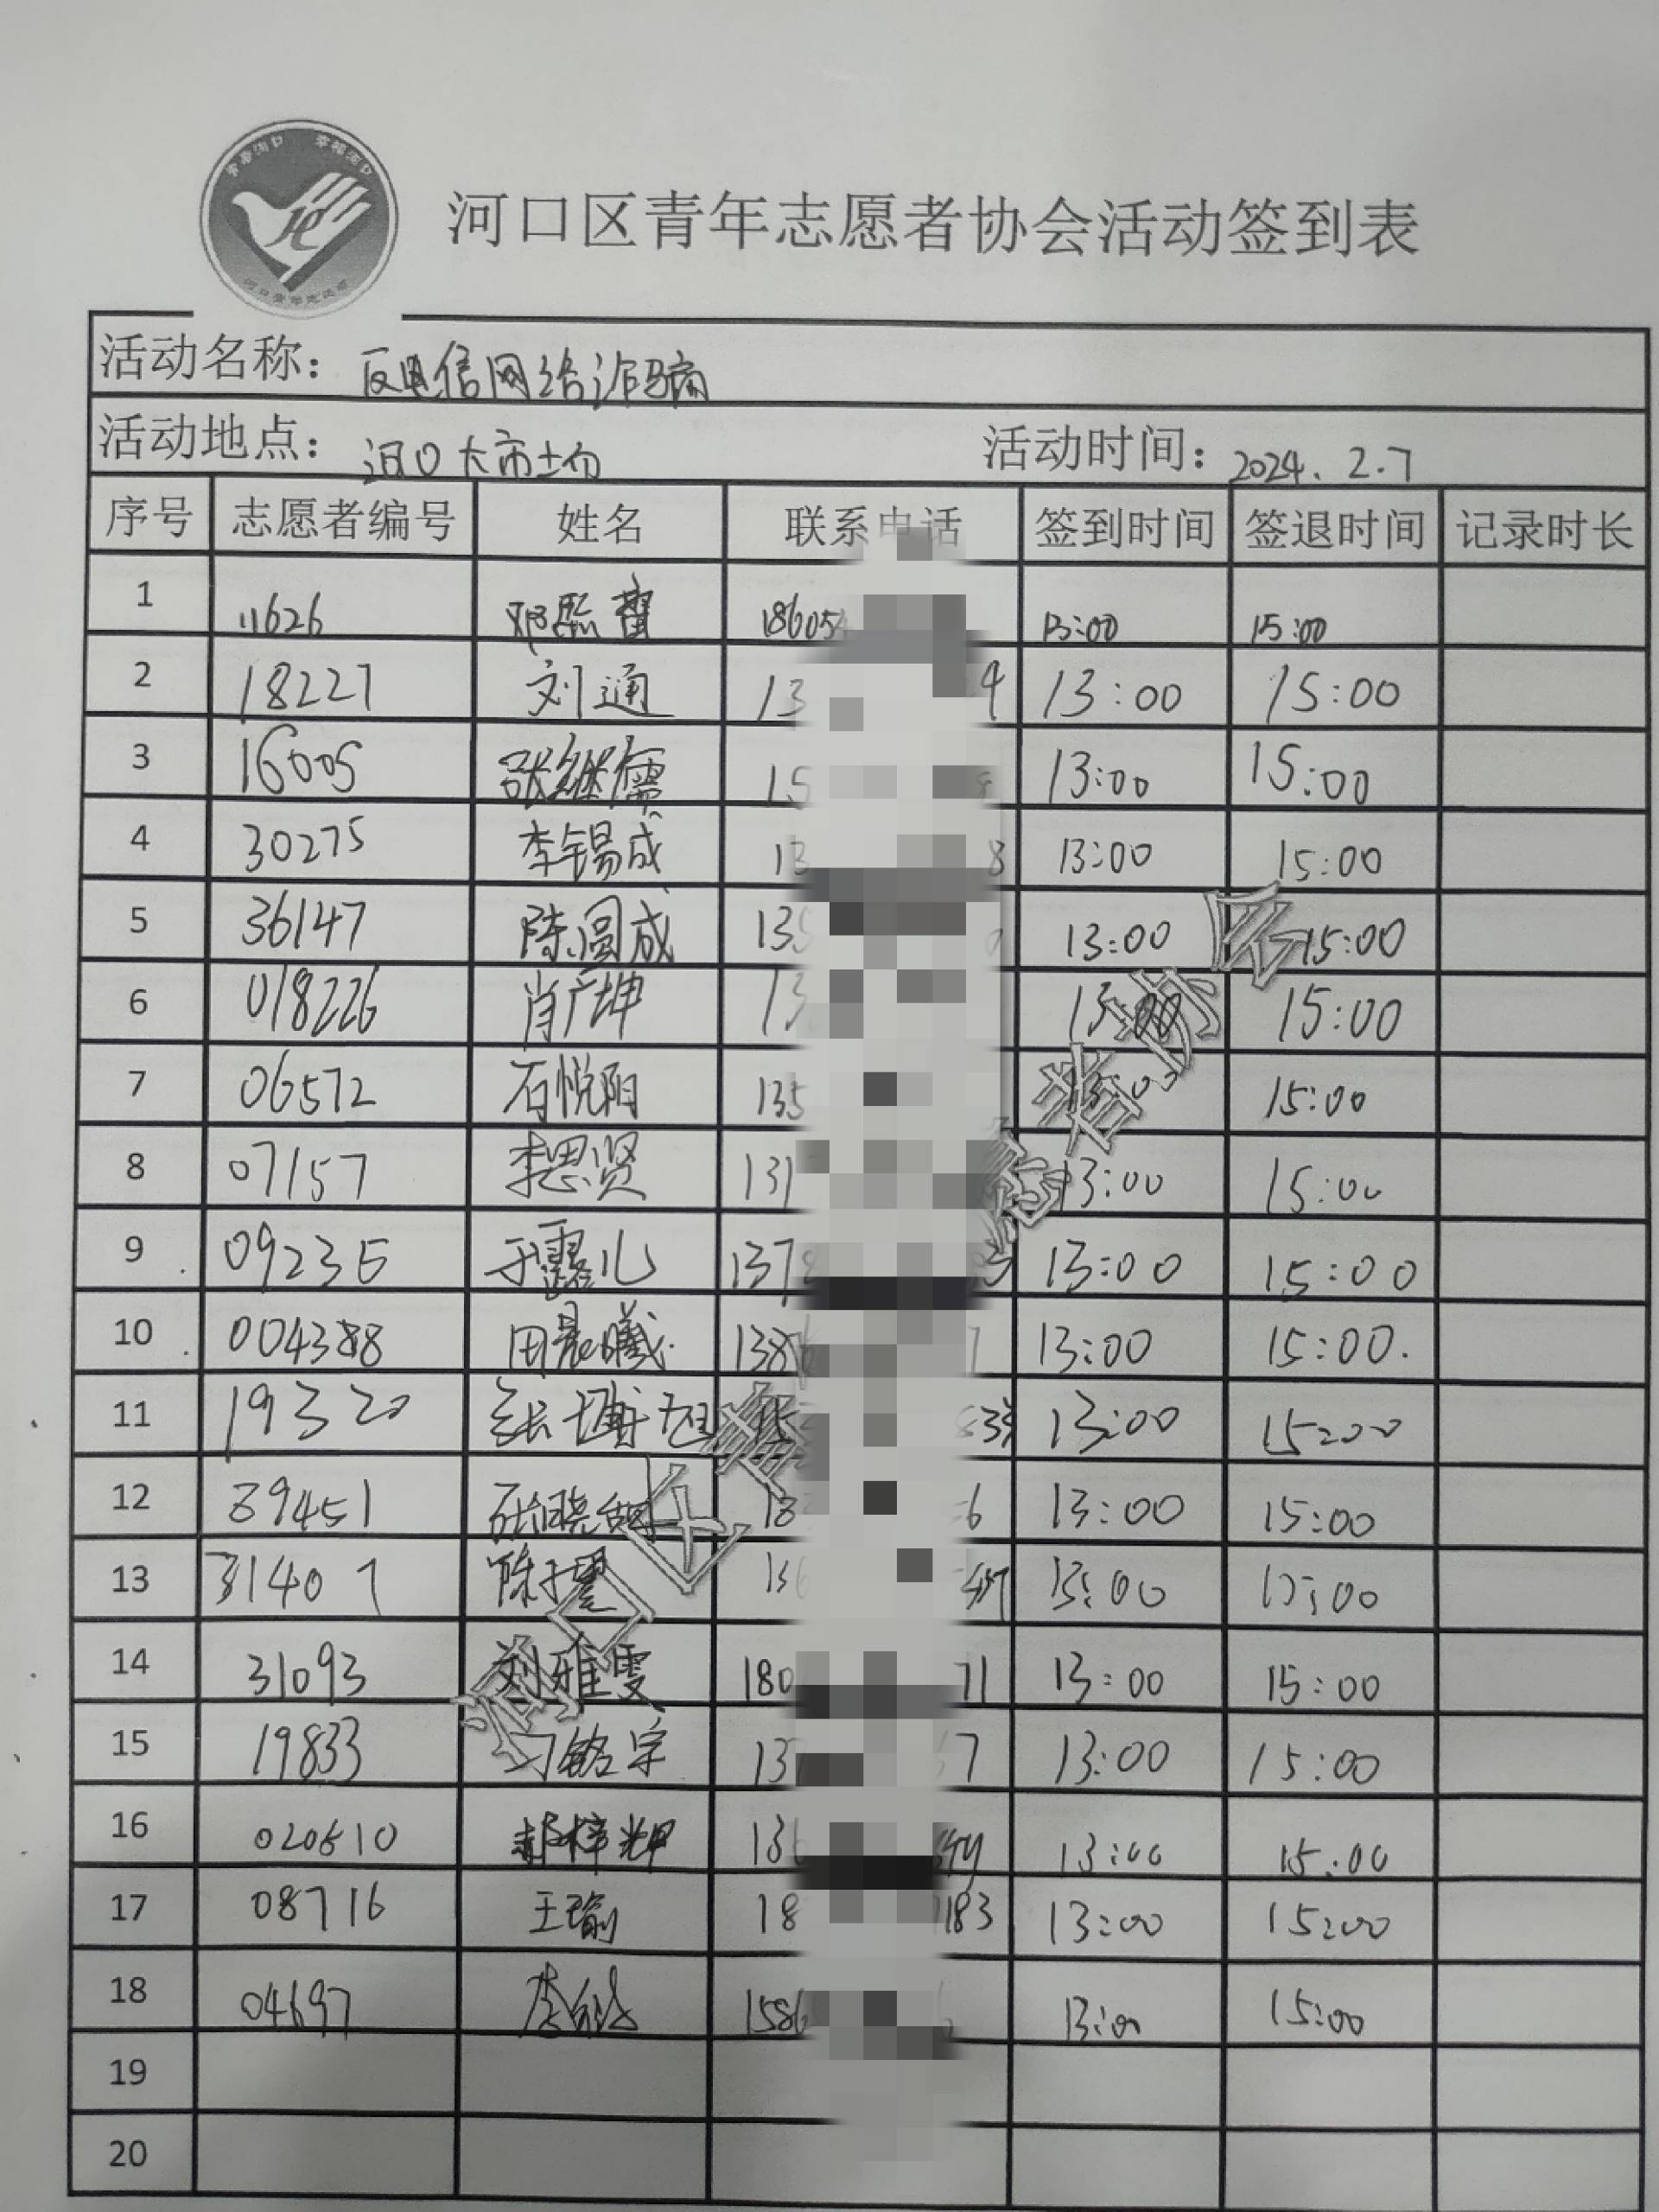 青春河口 幸福河口
河口青年志愿者
河口区青年志愿者协会活动签到表
活动名称：反电信网络诈骗
活动地点：河口大市场 活动时间：2024.2.7
序号 志愿者编号 姓名 联系电话 签到时间 签退时间 记录时长
1 11626 13:00 15:00
2 18227 刘通 13 4 13:00 15:00
3 16005 张继儒 15 13:00 15:00
4 30275 李锡成 13 8 13:00 15:00
5 36147 陈圆成 135 13:00 15:00
6 018226 肖广坤 13 13:00 15:00
7 06572 石悦阳 135 15:00
8 07157 李思贤 131 13:00 15:00
9 09235 于露儿 137 13:00 15:00
10 004388 田晨曦 138 7 13:00 15:00.
11 19320 张博旭 13:00 15:00
12 39451 张晓 18 6 13:00 15:00
13 31407 陈子墨 13:00 15:00
14 31093 刘雅雯 180 71 13:00 15:00
15 19833 刁铭宇 137 7 13:00 15:00
16 020510 郝梓辉 136 13:00 15:00
17 08716 王瑜 18 183 13:00 15:00
18 04697 1586 13:00 15:00
19
20
河口区青年志愿者协会